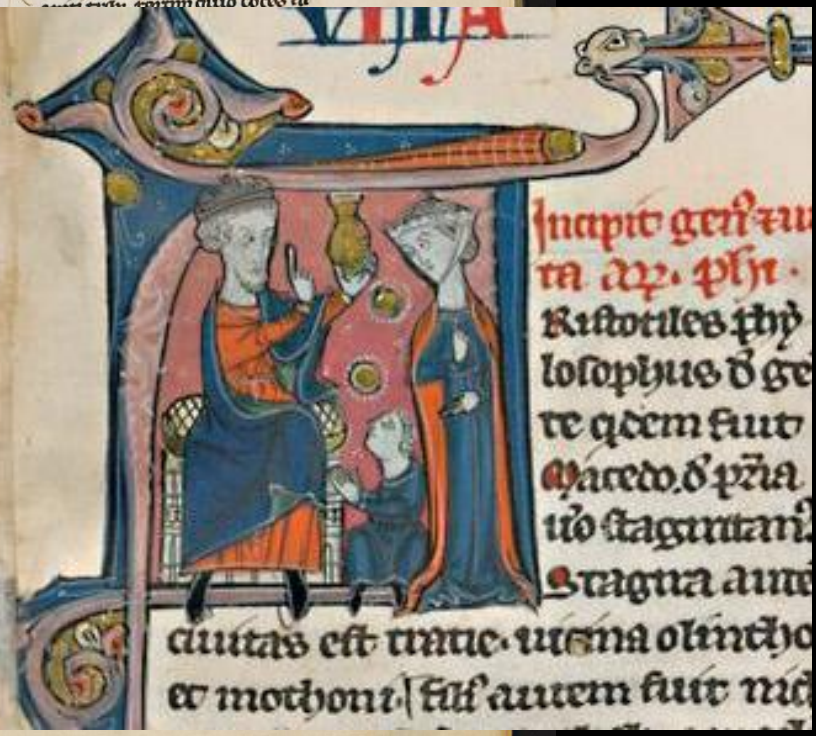 VITA
Incipit gen⁹ ⁊ ui
ta ar̅. ph̅i.
Ristotiles phy
losophus d̕ ge
te q̅dem fuit
Macedo. d̕ pr̅ia
u̕o stagiritan⁹
Stagira aute
ciuitas est tracie. uicina olintho
et mothoni. fili⁹ autem fuit nic